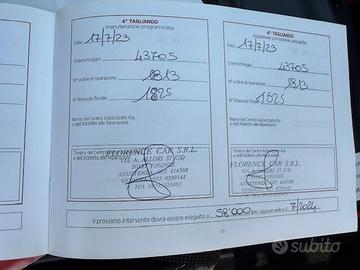 4° TAGLIANDO
manutenzione programmata
Data 17/7/23
Odometraggio 43705
N° ordine di riparazione 1813
N° Ricevuta fiscale 1825
Nome del Centro Autorizzato Kia
o dell'Addetto alle Riparazioni
Timbro del Centro Autorizzato Kia
o dell'Addetto alle Riparazioni
FLORENCE CAR S.R.L.
VIA A. ALLORI 17 C/D
FIRENZE
ASSISTENZA 055
P. IVA
4° TAGLIANDO
ispezione corrosione passante
Data 17/7/23
Odometraggio 43705
N° ordine di riparazione 1813
N° Ricevuta fiscale 1525
Nome del Centro Autorizzato Kia
o dell'Addetto alle Riparazioni
Timbro del Centro Autorizzato Kia
o dell'Addetto alle Riparazioni
FLORENCE CAR S.R.L.
VIA A. ALLORI 17 C/D
FIRENZE
ASSISTENZA 055
P. IVA
Il prossimo intervento dovrà essere eseguito a 58000 km, oppure entro il 7/2024
17
subito